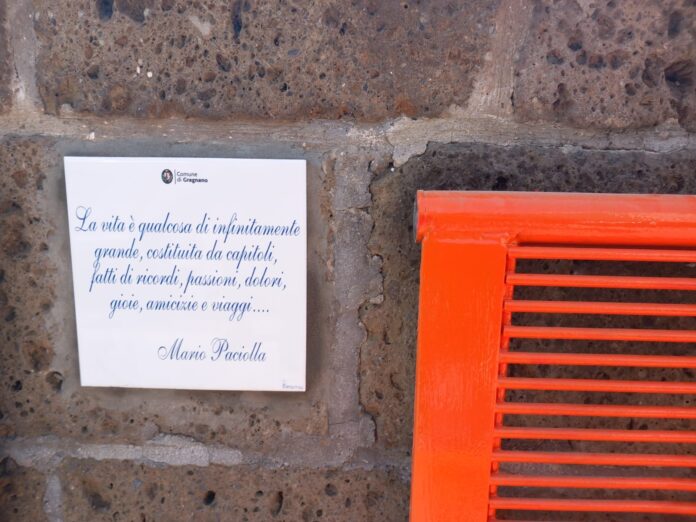 Comune
di Gragnano
La vita è qualcosa di infinitamente
grande, costituita da capitoli,
fatti di ricordi, passioni, dolori,
gioie, amicizie e viaggi....
Mario Paciolla